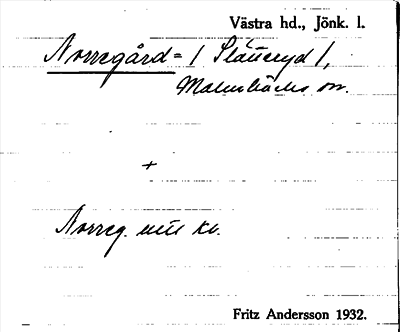 Västra hd., Jönk. l.
Norregård = / Släneryd /,
Malmbäcks sn.
+
Norreg. utt kv.
Fritz Andersson 1932.